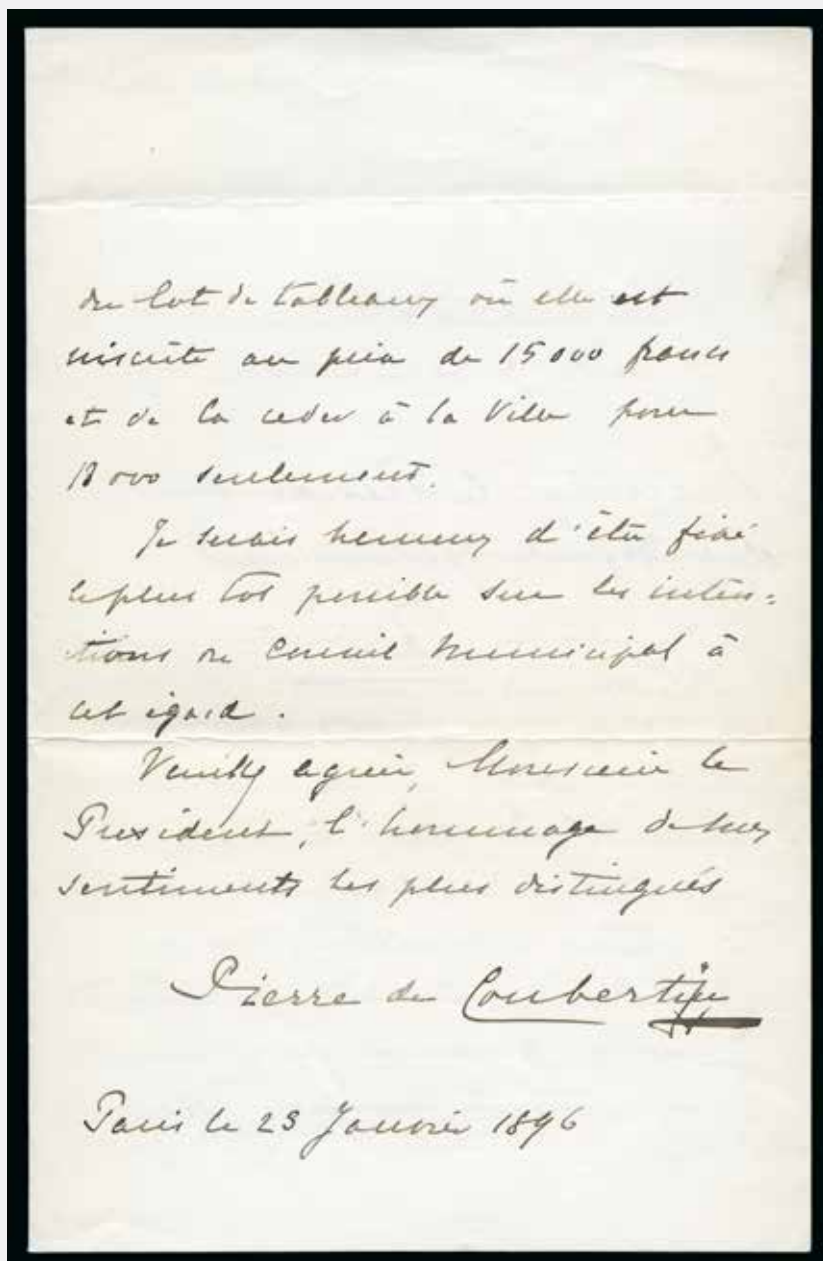 du lot de tableaux où elle est
inscrite au prix de 15000 francs
et de la céder à la Ville pour
000 seulement.
Je serais heureux d'être fixé
le plus tot possible sur les inten=
tions du Conseil Municipal à
cet égard.
Veuillez agréer, Monsieur le
Président, l'hommage de mes
sentiments les plus distingués
Pierre de Coubertin
Paris le Janvier 1896